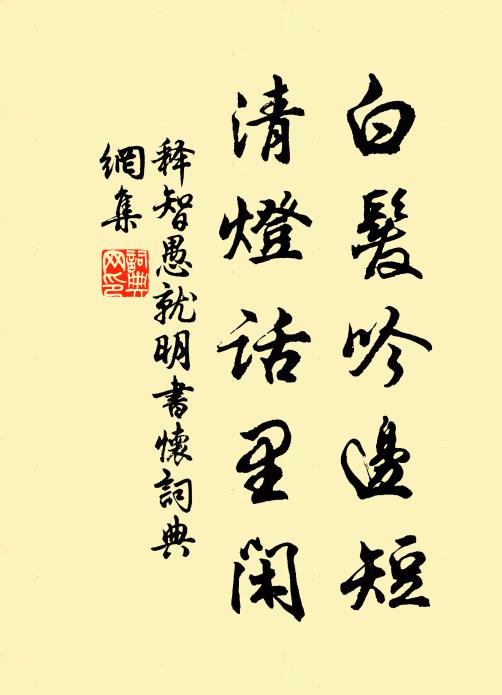 白髮吟邊短
清燈話里閑
释智愚就明書懷詞典
網集
詞典
网印